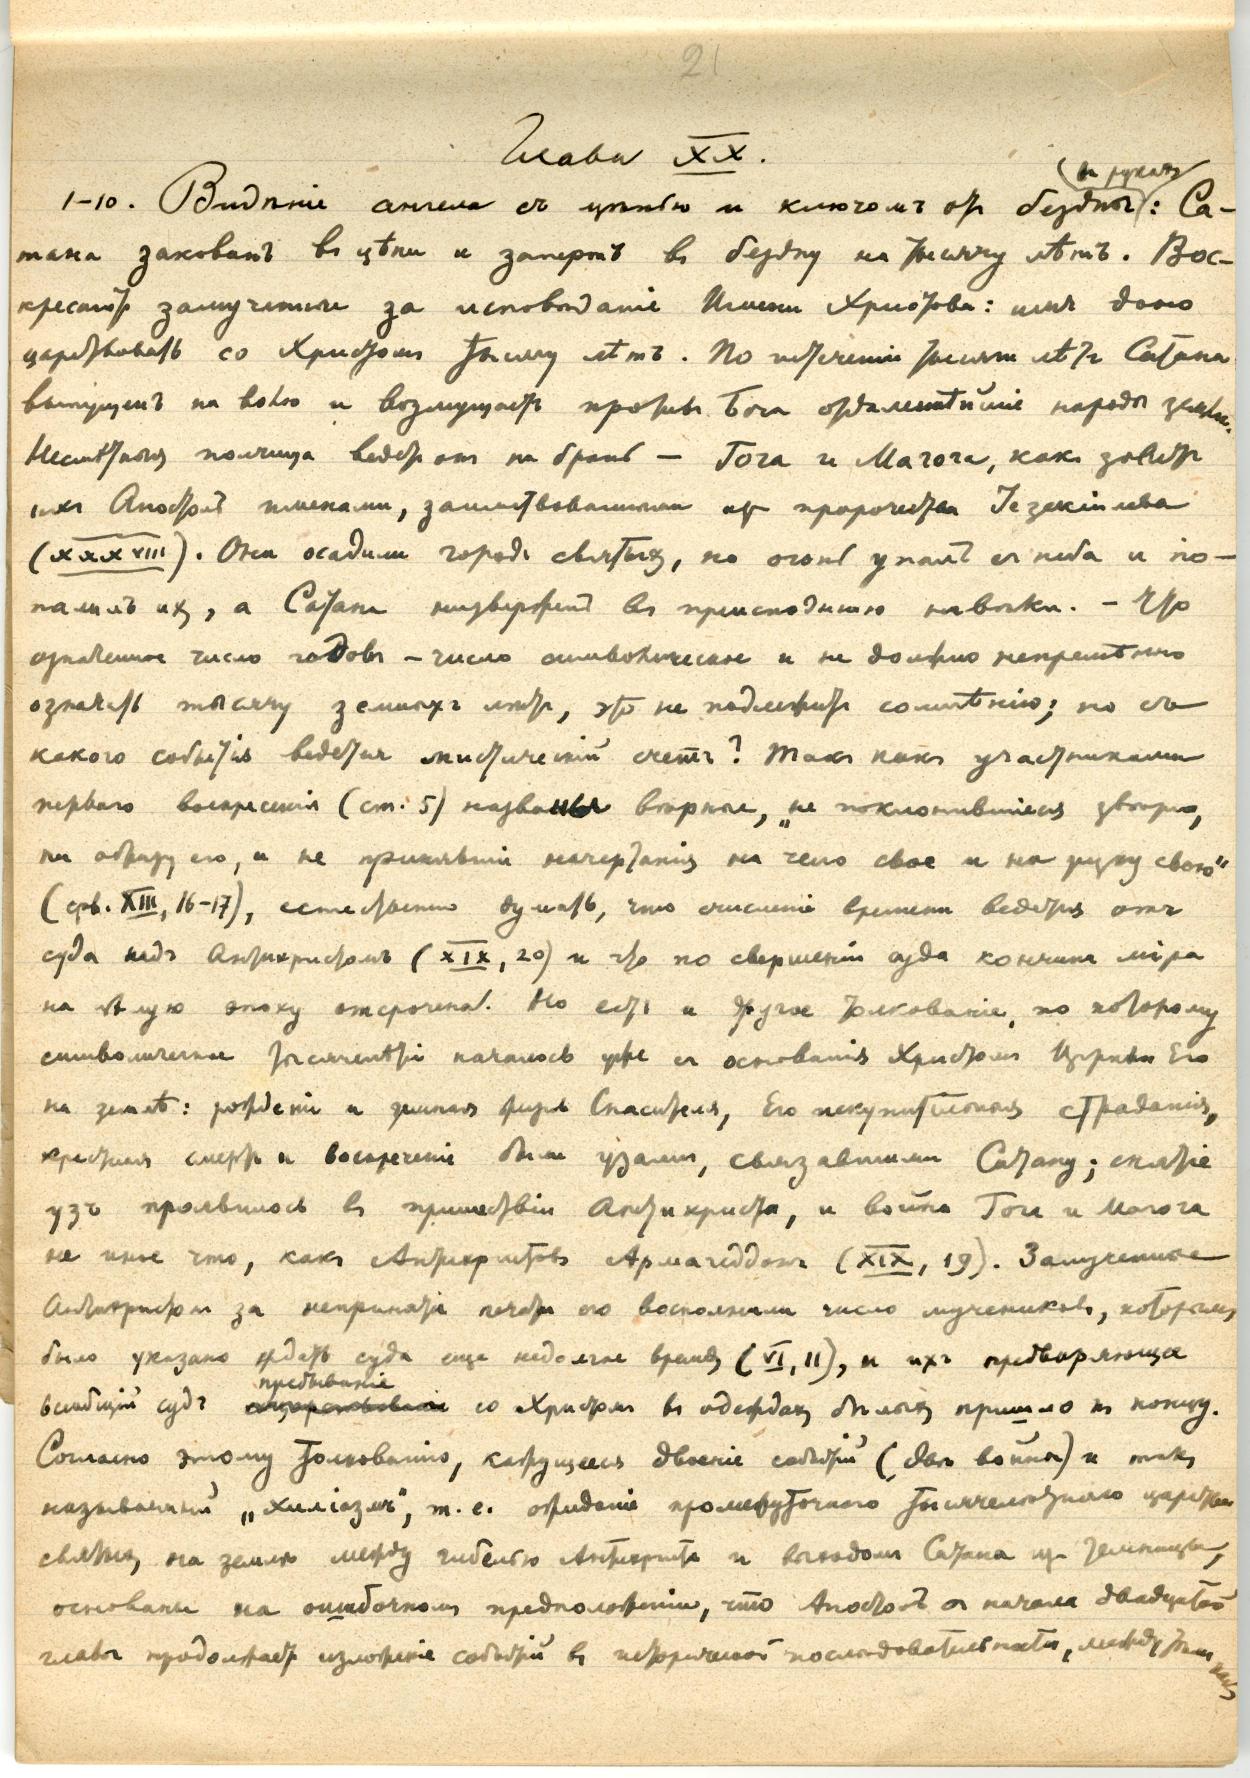 21
Глава XX.
(въ рукахъ)
1-10. Видѣніе ангела съ цѣпью и ключомъ отъ бездны: Са-
тана закованъ въ цѣпи и запертъ въ бездну на тысячу лѣтъ. Вос-
кресаютъ замученные за исповѣданіе Имени Христова: имъ дано
царствовать со Христомъ тысячу лѣтъ. По истеченіи тысячи лѣтъ Сатана
выпущенъ на волю и возмущаетъ противъ Бога отдаленнѣйшіе народы земли.
Несмѣтныя полчища ведетъ онъ на брань — Гога и Магога, какъ зоветъ
ихъ Апостолъ именами, заимствованными изъ пророчества Іезекіилева
(XXXVIII). Они осадили городъ святыхъ, но огонь упалъ съ неба и по-
палилъ ихъ, а Сатана низверженъ въ преисподнюю навѣки. – Что
означенное число годовъ – число символическое и не должно непремѣнно
означать тысячу земныхъ лѣтъ, это не подлежитъ сомнѣнію; но съ
какого событія ведется мистическій счетъ? Такъ какъ участниками
перваго воскресенія (ст. 5) названы вѣрные, „не поклонившіеся звѣрю,
ни образу его, и не принявшіе начертанія на чело свое и на руку свою“
(срв. XIII, 16-17), естественно думать, что счисленіе времени ведется отъ
суда надъ Антихристомъ (XIX, 20) и что по свершеніи суда кончина міра
на цѣлую эпоху отсрочена. Но есть и другое толкованіе, по которому
символическое тысячелѣтіе началось уже съ основанія Христомъ Церкви Его
на землѣ: рожденіе и земная жизнь Спасителя, Его искупительныя страданія,
крестная смерть и воскресеніе были узами, связавшими Сатану; снятіе
узъ проявилось въ пришествіи Антихриста, и война Гога и Магога
не иное что, какъ Антихристовъ Армагеддонъ (XIX, 19). Замученные
Антихристомъ за непринятіе печати его восполнили число мучениковъ, которымъ
было указано ждать суда еще недолгое время (VI, 11), и ихъ предваряющее
пребываніе
всеобщій судъ со Христомъ въ одеждахъ бѣлыхъ пришло къ концу.
Согласно этому толкованію, кажущееся двоеніе событій (двѣ войны) и такъ
называемый „хиліазмъ“, т. е. ожиданіе промежуточнаго тысячелѣтняго царства
святыхъ на землѣ между гибелью Антихриста и выходомъ Сатаны изъ темницы,
основаны на ошибочномъ предположеніи, что Апостолъ съ начала двадцатой
главы продолжаетъ изложеніе событій въ исторической послѣдовательности, между тѣмъ какъ